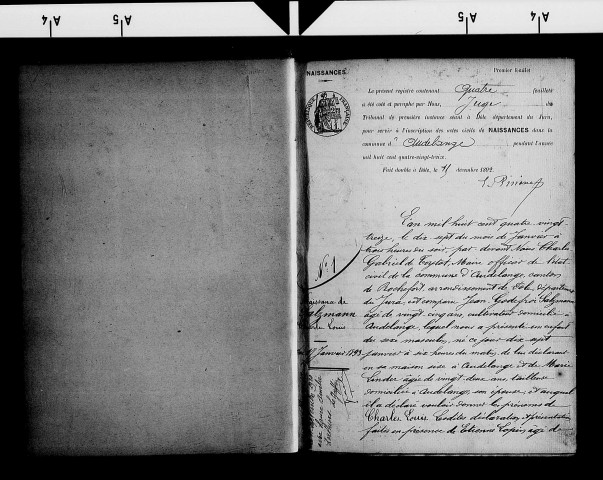 A 4
A 5
A 5
A 4
NAISSANCES
Premier feuillet
Le présent registre contenant Quatre feuillets
a été coté et paraphé par Nous, Juge du
Tribunal de première instance séant à Dole département du Jura,
pour servir à l'inscription des actes civils de NAISSANCES dans la
commune d' Audelange pendant l'année
mil huit cent quatre-vingt-treize.
Fait double à Dole, le 15 décembre 1892
L'an mil huit cent quatre vingt
treize, le dix sept du mois de Janvier à
trois heures du soir, par devant Nous Charles
Gabriel de Maire officier de l'état
civil de la commune d'Audelange, canton
de Rochefort, arrondissement de Dole, département
du Jura, est comparu Jean Godefroi Salzmann
âgé de vingt cinq ans, cultivateur domicilié à
Audelange, lequel nous a présenté un enfant
du sexe masculin, né ce jour dix sept
janvier à six heures du matin, de lui déclarant
en sa maison sise à Audelange et de Marie
âgée de vingt deux ans, tailleuse
domiciliée à Audelange, son épouse, et auquel
il a déclaré vouloir donner les prénoms de
Charles Louis. Lesdites déclaration et présentation
faites en présence de Etienne âgé de
N° 1
Naissance de
Salzmann
Charles Louis
17 Janvier 1893